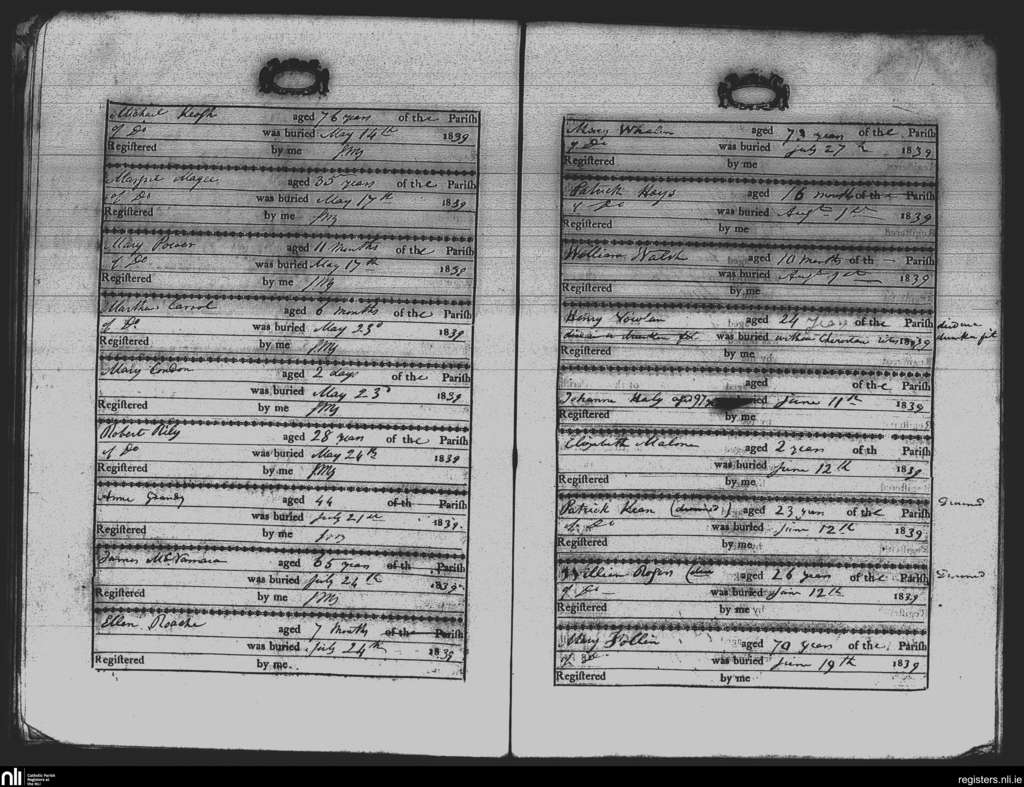 Michael Keogh aged 76 years of the Parish
of Do was buried May 14th 1839
Registered by me
aged 35 years of the Parish
of Do was buried May 17th 1839
Registered by me
Mary Power aged 11 months of the Parish
of Do was buried May 17th 1839
Registered by me
Martha Carrol aged 6 months of the Parish
of Do was buried May 23d 1839
Registered by me
Mary Condon aged 2 days of the Parish
was buried May 23d 1839
Registered by me
Robert Rily aged 28 years of the Parish
of Do was buried May 24th 1839
Registered by me
Anne Grandy aged 44 of th Parish
was buried July 21st 1839.
Registered by me
James McNamara aged 65 years of th Parish
was buried July 24th 1839.
Registered by me
Ellen Roache aged 7 months of the Parish
was buried July 24th 1839
Registered by me.
Mary Whelan aged 73 years of the Parish
of Do was buried July 27th 1839
Registered by me
Patrick Hays aged 16 months of the Parish
of Do was buried Augt 1st 1839
Registered by me
William Walsh aged 10 months of th Parish
was buried Augt 1839
Registered by me
Henry Nowlan aged 24 years of the Parish died in a
died in a drunken fit was buried without Christian 1839 drunken fit
Registered by me
aged of the Parish
Johanna Haly June 11th 1839
Registered by me
Elizabeth Malone aged 2 years of th Parish
was buried June 12th 1839
Registered by me
Patrick Kean (drowned) aged 23 years of the Parish
of Do was buried June 12th 1839
Registered by me
William Rogers aged 26 years of the Parish
of Do was buried June 12th 1839
Registered by me
Mary aged 70 years of the Parish
of Do was buried June 19th 1839
Registered by me
nli Catholic Parish
Registers at
the NLI
registers.nli.ie